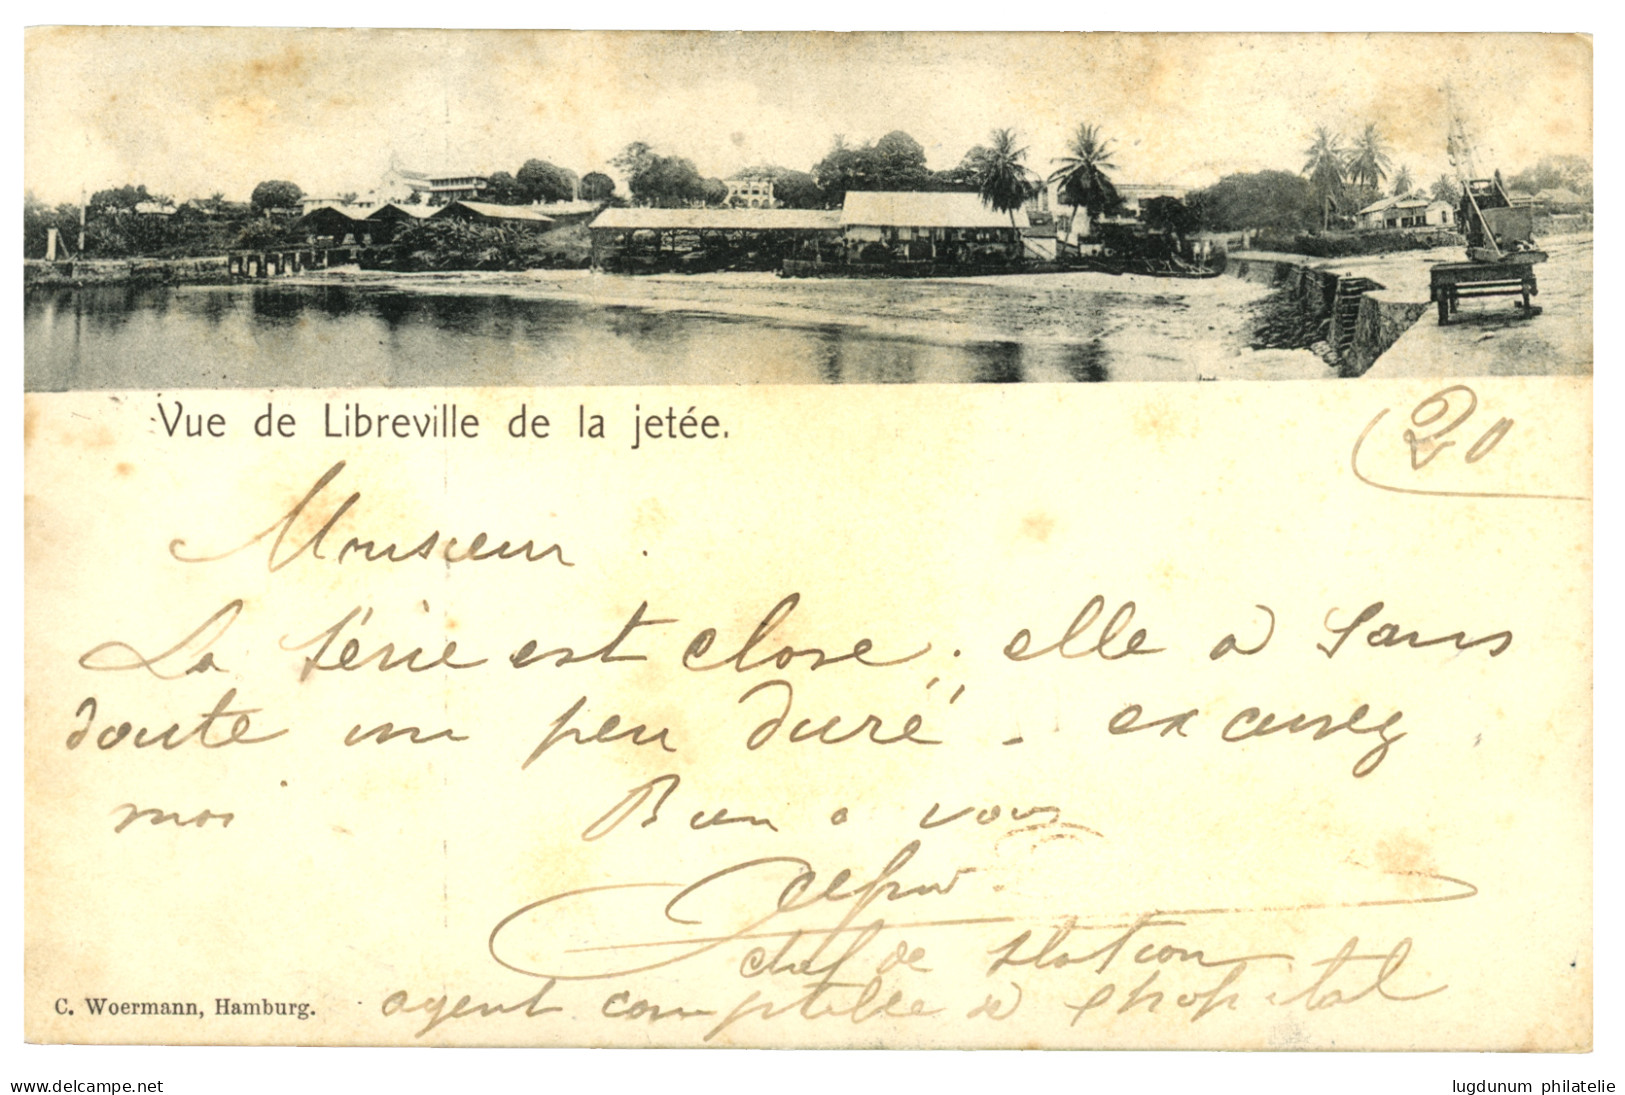 Vue de Libreville de la jetée.
20
Monsieur.
La série est close. elle a sans
doute un peu duré - excusez
moi Bien a vous
chef de station
agent comptable a l'hopital
C. Woermann, Hamburg.
www.delcampe.net
lugdunum philatelie